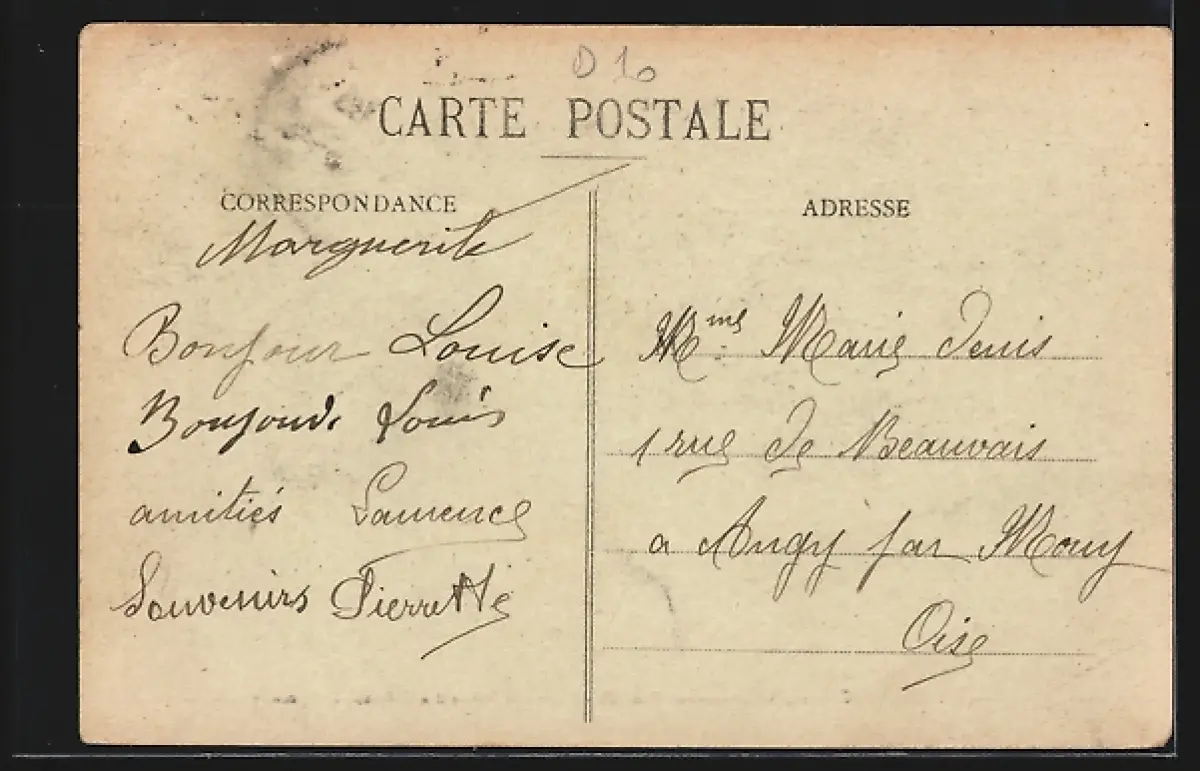 D 10
CARTE POSTALE
CORRESPONDANCE
Marguerite
Bonjour Louise
Bonjour Louis
amitiés Laurence
Souvenirs Pierrette
ADRESSE
Mme Marie Denis
1 rue de Beauvais
a Angy par Mouy
Oise